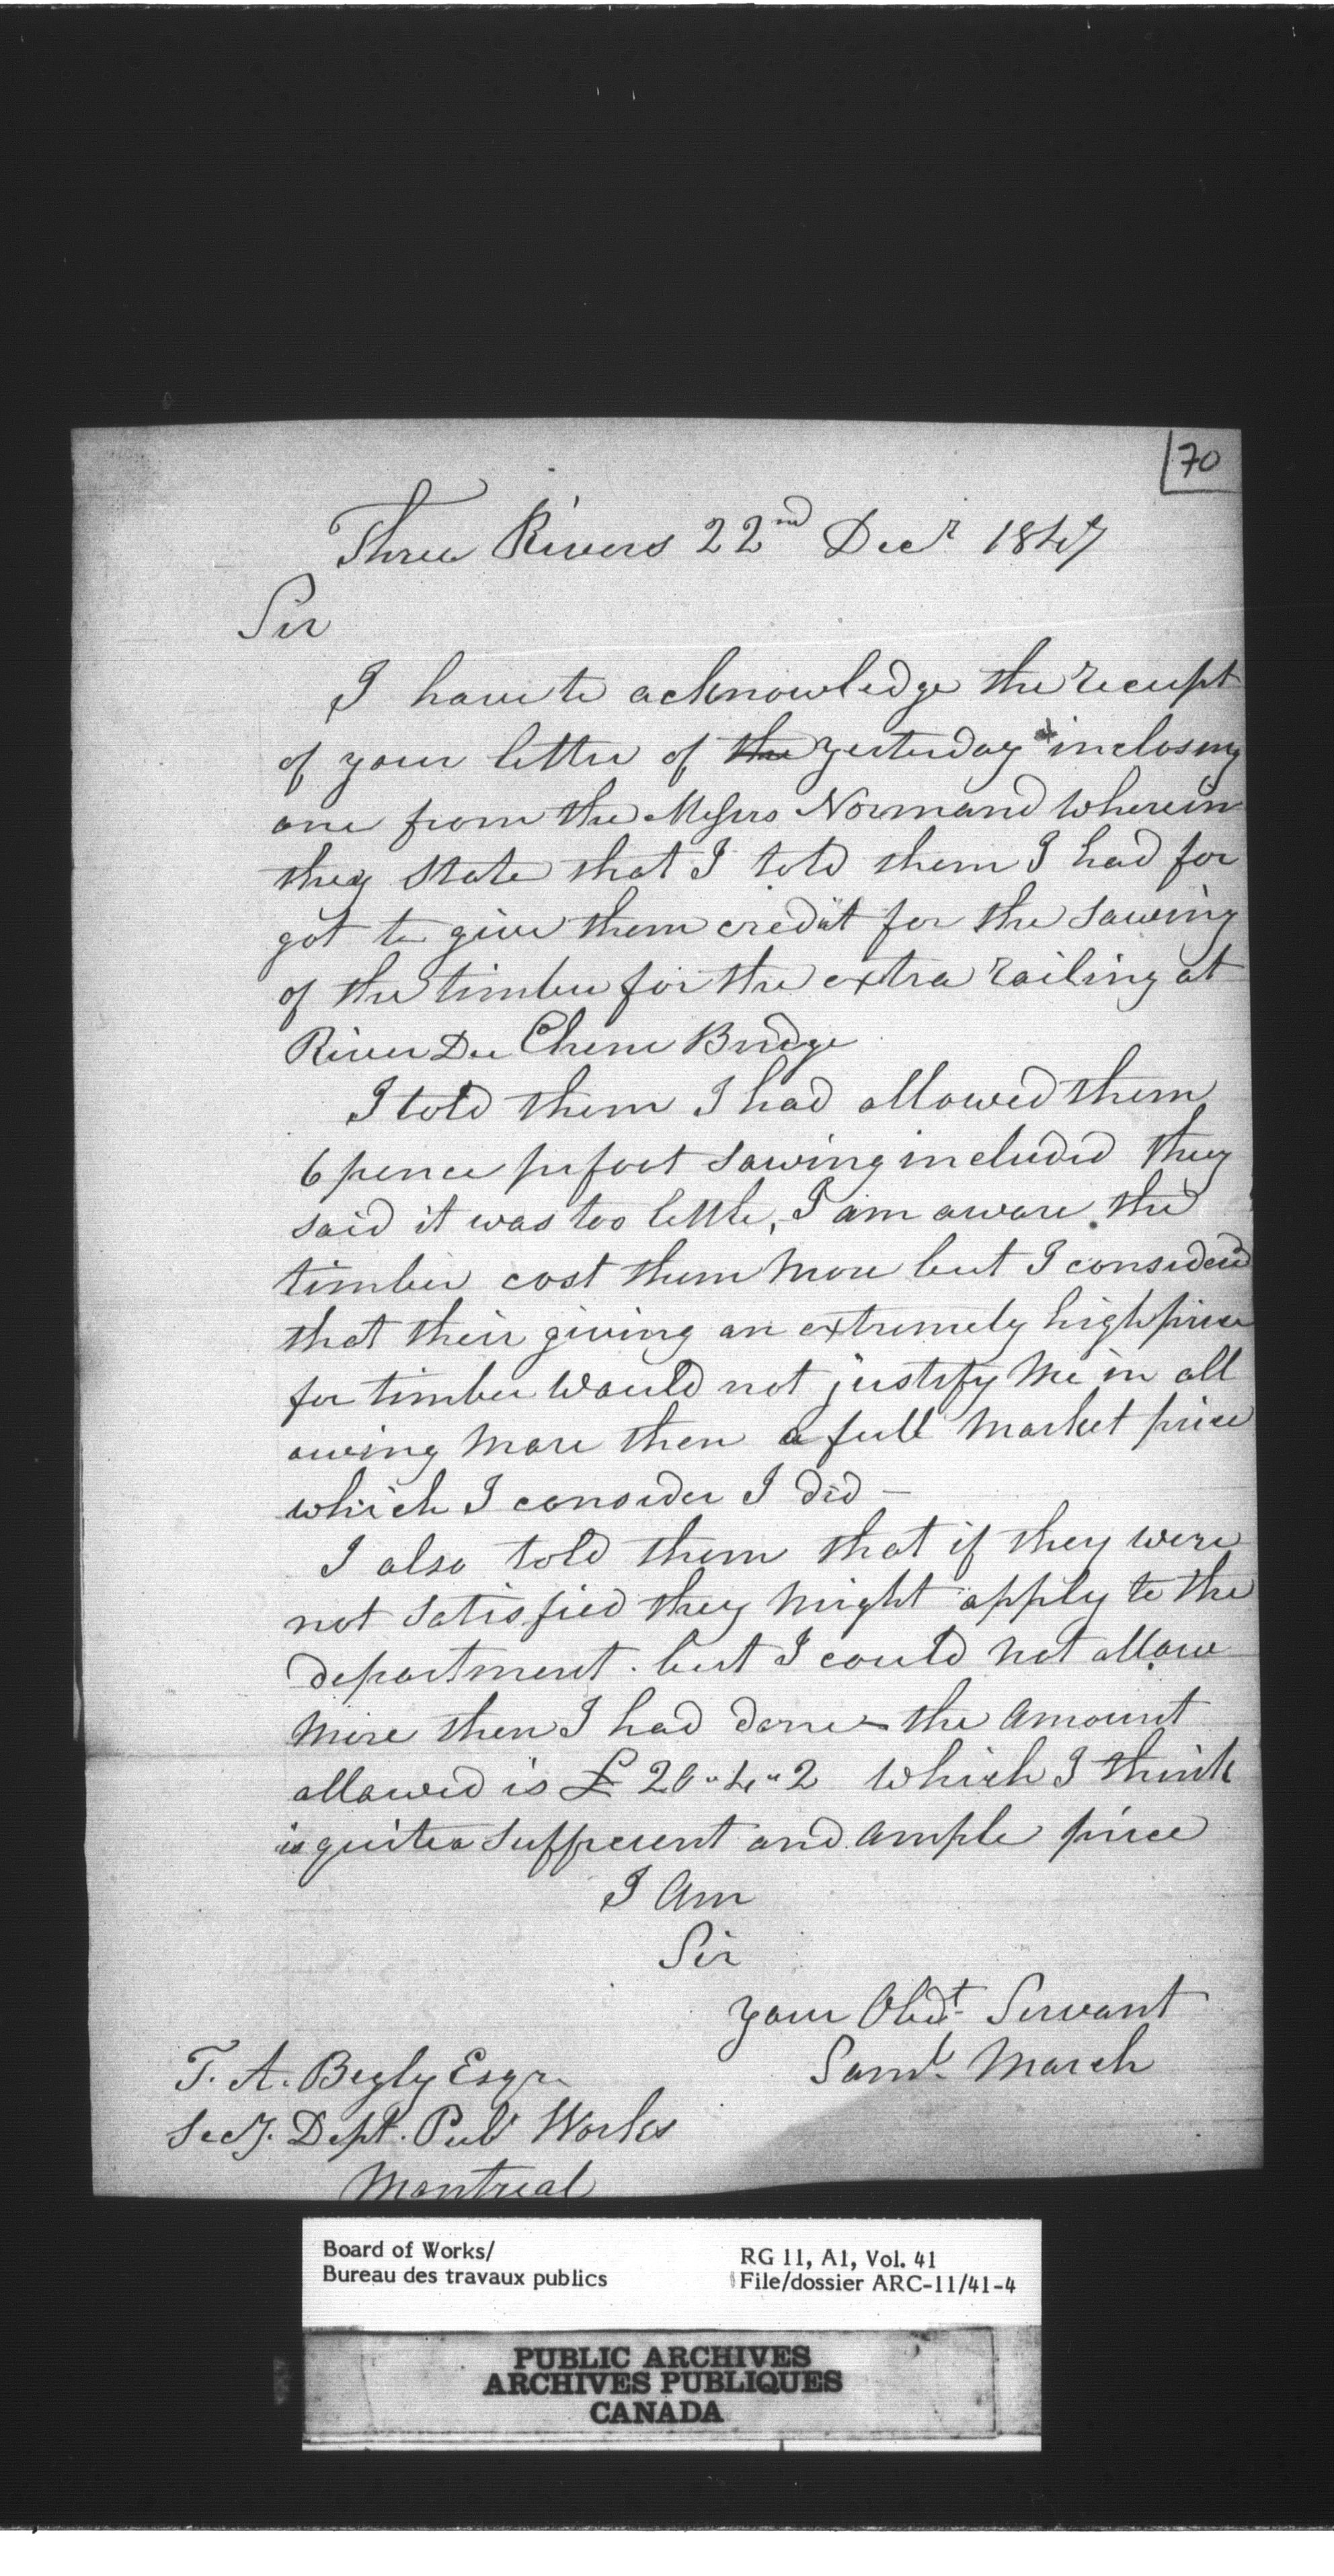 70
Three Rivers 22nd Decr 1847
Sir
I have to acknowledge the receipt
of your letter of the yesterday inclosing
one from the Messrs Normand wherein
they state that I told them I had for
got to give them credit for the sawing
of the timber for the extra railing at
River Du Chene Bridge
I told them I had allowed them
6 pence pr foot sawing included they
said it was too little, I am aware the
timber cost them more but I considered
that their giving an extremely high price
for timber would not justify me in all
owing more then a full market price
which I consider I did —
I also told them that if they were
not satisfied they might apply to the
department. but I could not allow
more then I had done – the amount
allowed is £ 20 " 4 " 2 which I think
is quite a sufficient and ample price
I Am
Sir
your Obdt. Servant
Saml. March
T. A. Begly Esqr.
Secy. Dept. Pub Works
Montreal
Board of Works/
Bureau des travaux publics
RG 11, A1, Vol. 41
File/dossier ARC-11/41-4
PUBLIC ARCHIVES
ARCHIVES PUBLIQUES
CANADA